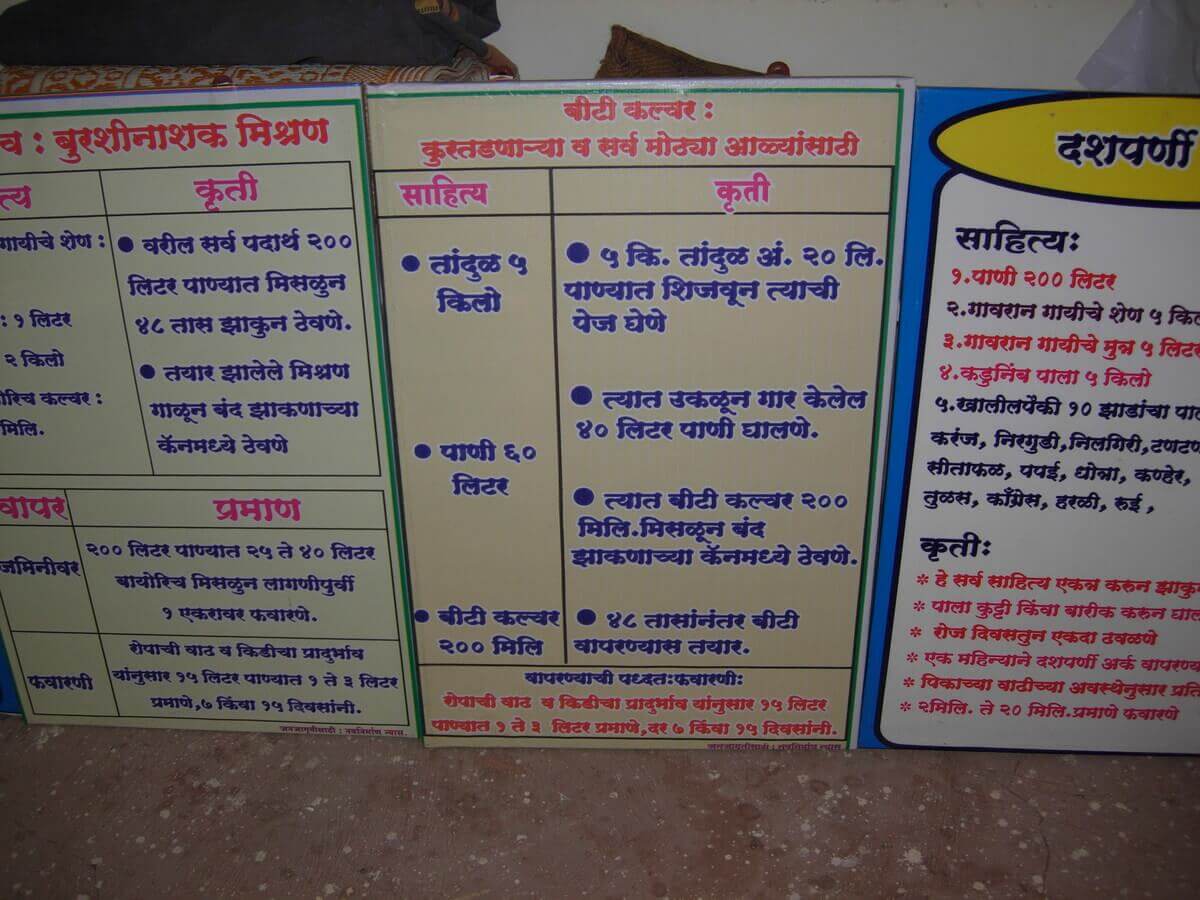 व : बुरशीनाशक मिश्रण
त्य
कृती
गायीचे शेण :
: १ लिटर
२ किलो
रिच कल्चर :
मिलि.
● वरील सर्व पदार्थ २००
लिटर पाण्यात मिसळुन
४८ तास झाकुन ठेवणे.
● तयार झालेले मिश्रण
गाळून बंद झाकणाच्या
कॅनमध्ये ठेवणे
वापर
प्रमाण
जमिनीवर
२०० लिटर पाण्यात २५ ते ४० लिटर
बायोरिच मिसळुन लागणीपुर्वी
१ एकरावर फवारणे.
फवारणी
रोपाची वाढ व किडीचा प्रादुर्भाव
यांनुसार १५ लिटर पाण्यात १ ते ३ लिटर
प्रमाणे,७ किंवा १५ दिवसांनी.
जनजागृतीसाठी : नवनिर्माण न्यास.
बीटी कल्चर :
कुरतडणाऱ्या व सर्व मोठ्या आळ्यांसाठी
साहित्य
कृती
● तांदुळ ५
किलो
● पाणी ६०
लिटर
● बीटी कल्चर
२०० मिलि
● ५ कि. तांदुळ अं. २० लि.
पाण्यात शिजवून त्याची
पेज घेणे
● त्यात उकळून गार केलेल
४० लिटर पाणी घालणे.
● त्यात बीटी कल्चर २००
मिलि.मिसळून बंद
झाकणाच्या कॅनमध्ये ठेवणे.
● ४८ तासांनंतर बीटी
वापरण्यास तयार.
वापरण्याची पध्दतःफवारणीः
रोपाची वाढ व किडीचा प्रादुर्भाव यांनुसार १५ लिटर
पाण्यात १ ते ३ लिटर प्रमाणे,दर ७ किंवा १५ दिवसांनी.
जनजागृतीसाठी : नवनिर्माण न्यास.
दशपर्णी
साहित्यः
१.पाणी २०० लिटर
२.गावरान गायीचे शेण ५ कि
३.गावरान गायीचे मुत्र ५ लिटर
४.कडुनिंब पाला ५ किलो
५.खालीलपैकी १० झाडांचा पा
करंज, निरगुडी,निलगिरी,टणटण
सीताफळ, पपई, धोत्रा, कण्हेर,
तुळस, काँग्रेस, हरळी, रुई ,
कृतीः
* हे सर्व साहित्य एकत्र करुन झाकु
* पाला कुट्टी किंवा बारीक करुन घा
* रोज दिवसतुन एकदा ढवळणे
* एक महिन्याने दशपर्णी अर्क वापरण्य
* पिकाच्या वाढीच्या अवस्थेनुसार प्रति
* २मिलि. ते २० मिलि.प्रमाणे फवारणे